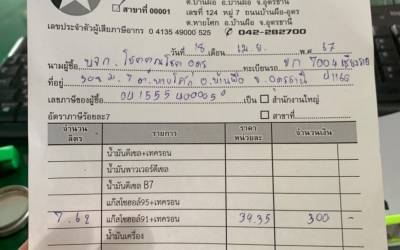 ต.บ้านผือ อ.บ้านผือ จ.อุดรธานี
สาขาที่ 00001 เลขที่ 124 หมู่ 7 ถนนบ้านผือ-อุดร
ต.หายโศก อ.บ้านผือ จ.อุดรธานี
เลขประจำตัวผู้เสียภาษีอากร 0 4135 49000 525 042-282700
วันที่ 18 เดือน เม.ย. พ.ศ. 67
นามผู้ซื้อ บจก. อุดร ทะเบียนรถ 7004
ที่อยู่ ม.7 อ.บ้านผือ จ.อุดรธานี 41160
เลขภาษีของผู้ซื้อ เป็น สำนักงานใหญ่
อัตราภาษีร้อยละ7 สาขาที่
จำนวนลิตร รายการ ราคาหน่วยละ จำนวนเงิน
น้ำมันดีเซล+เทครอน
น้ำมันพาวเวอร์ดีเซล
น้ำมันดีเซล B7
แก๊สโซฮอล์95+เทครอน
7.62 แก๊สโซฮอล์91+เทครอน 39.35 300 -
น้ำมันเครื่อง